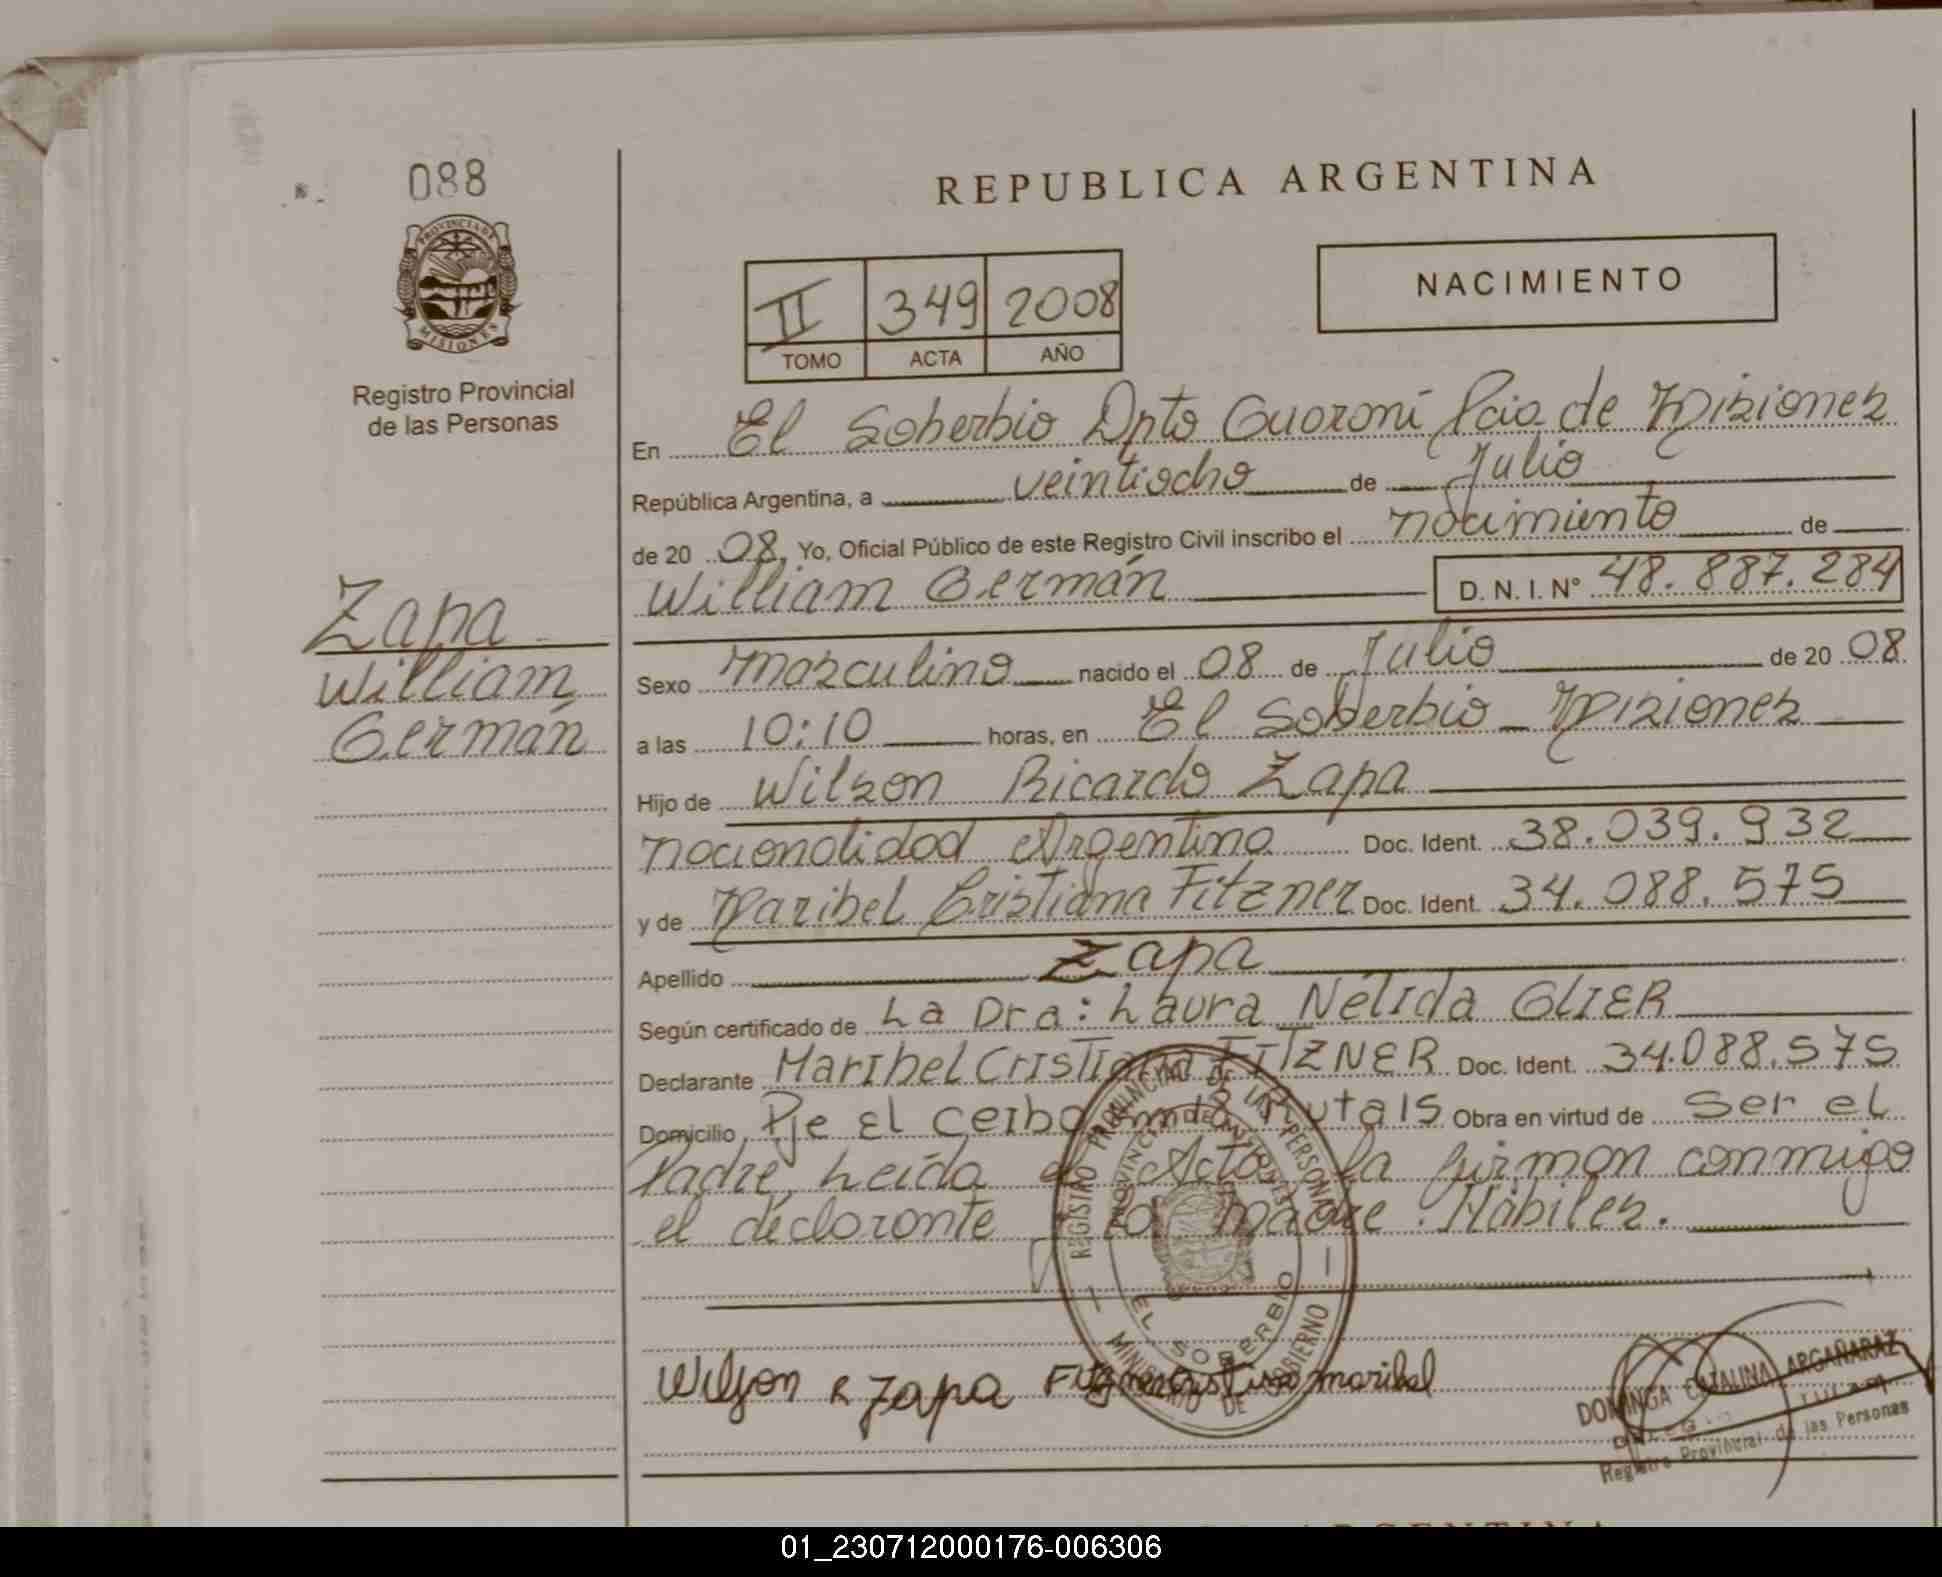 088
REPUBLICA ARGENTINA
PROVINCIA DE
MISIONES
Registro Provincial
de las Personas
II 349 2008
TOMO ACTA AÑO
NACIMIENTO
En El Soberbio Dpto Guaraní Pcia de Misiones
República Argentina, a veintiocho de Julio
de 20 08, Yo, Oficial Público de este Registro Civil inscribo el nacimiento de
William Germán D. N. I. Nº 48.887.284
Zapa
William
Germán
Sexo masculino nacido el 08 de Julio de 20 08
a las 10:10 horas, en El Soberbio Misiones
Hijo de Wilson Ricardo Zapa
nacionalidad Argentina Doc. Ident. 38.039.932
y de Maribel Cristiana Fitzner Doc. Ident. 34.088.575
Apellido Zapa
Según certificado de La Dra: Laura Nélida GLIER
Declarante Maribel Cristiana FITZNER Doc. Ident. 34.088.575
Domicilio Pje El ceibo Ruta 15 Obra en virtud de ser el
Padre, Leída el Acta la firman conmigo
el declarante y la madre. Hábiles.
REGISTRO PROVINCIAL DE LAS PERSONAS
EL SOBERBIO
MINISTERIO DE GOBIERNO
Wilson R Zapa Fitzner Cristiana maribel
DOMINGA CATALINA ARGAÑARAZ
Registro Provincial de las Personas
01_230712000176-006306